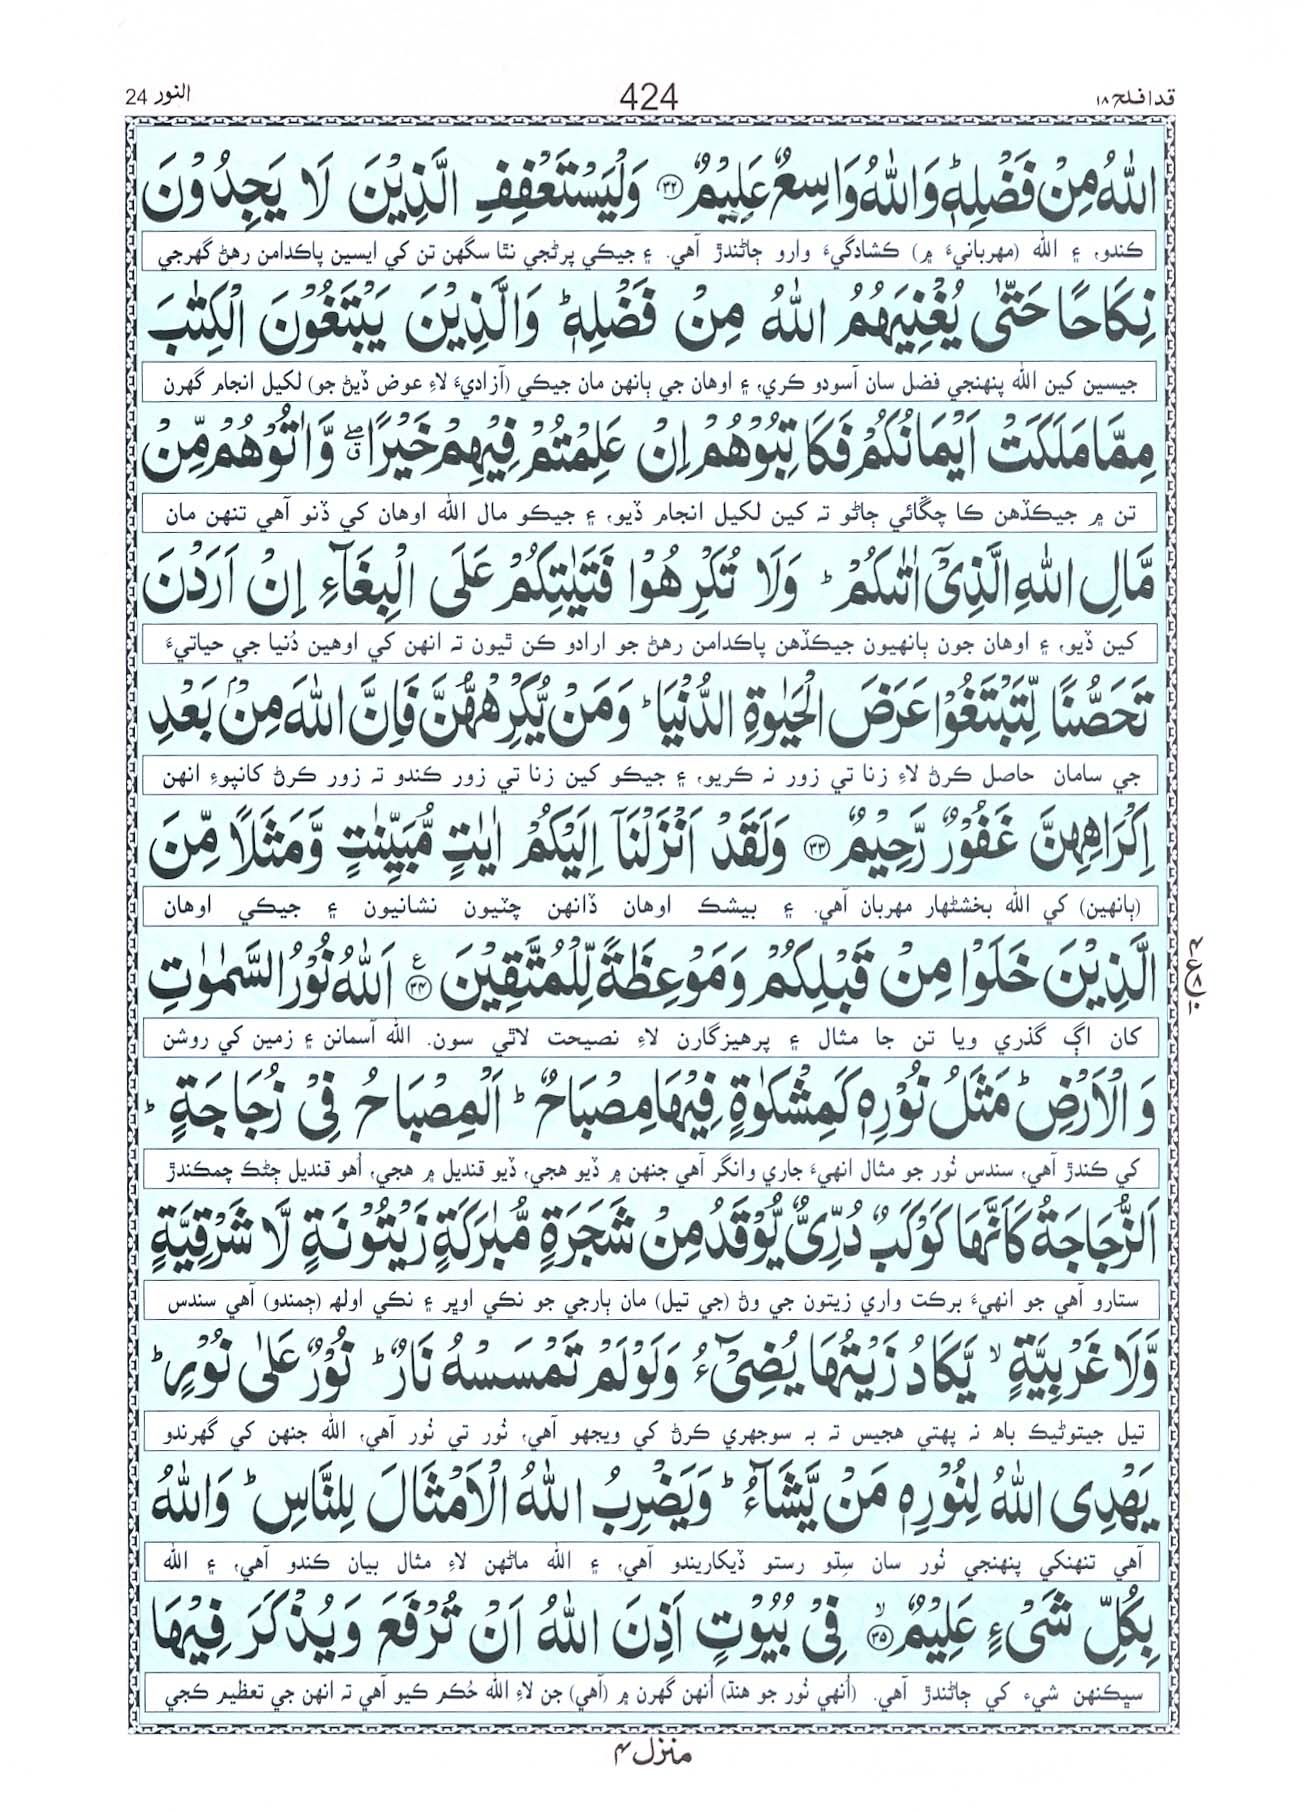 قدافلح ۱۸ 424 النور 24
اللّٰهُ مِنْ فَضْلِهٖ ؕ وَاللّٰهُ وَاسِعٌ عَلِيْمٌ ﴿۳۲﴾ وَلْيَسْتَعْفِفِ الَّذِيْنَ لَا يَجِدُوْنَ
ڪندو، ۽ الله (مهربانيءَ ۾) ڪشادگيءَ وارو ڄاڻندڙ آهي. ۽ جيڪي پرڻجي نٿا سگهن تن کي ايسين پاڪدامن رهڻ گهرجي
نِكَاحًا حَتّٰى يُغْنِيَهُمُ اللّٰهُ مِنْ فَضْلِهٖ ؕ وَالَّذِيْنَ يَبْتَغُوْنَ الْكِتٰبَ
جيسين کين الله پنهنجي فضل سان آسودو ڪري، ۽ اوهان جي ٻانهن مان جيڪي (آزاديءَ لاءِ عوض ڏيڻ جو) لکيل انجام گهرن
مِمَّا مَلَكَتْ اَيْمَانُكُمْ فَكَاتِبُوْهُمْ اِنْ عَلِمْتُمْ فِيْهِمْ خَيْرًا ۖق وَّاٰتُوْهُمْ مِّنْ
تن ۾ جيڪڏهن ڪا چڱائي ڄاڻو تہ کين لکيل انجام ڏيو، ۽ جيڪو مال الله اوهان کي ڏنو آهي تنهن مان
مَّالِ اللّٰهِ الَّذِيْۤ اٰتٰىكُمْ ؕ وَلَا تُكْرِهُوْا فَتَيٰتِكُمْ عَلَى الْبِغَآءِ اِنْ اَرَدْنَ
کين ڏيو، ۽ اوهان جون ٻانهيون جيڪڏهن پاڪدامن رهڻ جو ارادو ڪن ٿيون تہ انهن کي اوهين دُنيا جي حياتيءَ
تَحَصُّنًا لِّتَبْتَغُوْا عَرَضَ الْحَيٰوةِ الدُّنْيَا ؕ وَمَنْ يُّكْرِهْهُّنَّ فَاِنَّ اللّٰهَ مِنْۢ بَعْدِ
جي سامان حاصل ڪرڻ لاءِ زنا تي زور نہ ڪريو، ۽ جيڪو کين زنا تي زور ڪندو تہ زور ڪرڻ کانپوءِ انهن
اِكْرَاهِهِنَّ غَفُوْرٌ رَّحِيْمٌ ﴿۳۳﴾ وَلَقَدْ اَنْزَلْنَاۤ اِلَيْكُمْ اٰيٰتٍ مُّبَيِّنٰتٍ وَّمَثَلًا مِّنَ
(ٻانهين) کي الله بخشڻهار مهربان آهي. ۽ بيشڪ اوهان ڏانهن چٽيون نشانيون ۽ جيڪي اوهان
الَّذِيْنَ خَلَوْا مِنْ قَبْلِكُمْ وَمَوْعِظَةً لِّلْمُتَّقِيْنَ ﴿۳۴﴾ ع اَللّٰهُ نُوْرُ السَّمٰوٰتِ
کان اڳ گذري ويا تن جا مثال ۽ پرهيزگارن لاءِ نصيحت لاٿي سون. الله آسمانن ۽ زمين کي روشن
وَالْاَرْضِ ؕ مَثَلُ نُوْرِهٖ كَمِشْكٰوةٍ فِيْهَا مِصْبَاحٌ ؕ اَلْمِصْبَاحُ فِيْ زُجَاجَةٍ ؕ
کي ڪندڙ آهي، سندس نُور جو مثال انهيءَ جاري وانگر آهي جنهن ۾ ڏيو هجي، ڏيو قنديل ۾ هجي، اُهو قنديل ڄڻڪ چمڪندڙ
اَلزُّجَاجَةُ كَاَنَّهَا كَوْكَبٌ دُرِّيٌّ يُّوْقَدُ مِنْ شَجَرَةٍ مُّبٰرَكَةٍ زَيْتُوْنَةٍ لَّا شَرْقِيَّةٍ
ستارو آهي جو انهيءَ برڪت واري زيتون جي وڻ (جي تيل) مان ٻارجي جو نڪي اوڀر ۽ نڪي اولهہ (ڄمندو) آهي سندس
وَّلَا غَرْبِيَّةٍ ۙ يَّكَادُ زَيْتُهَا يُضِيْٓءُ وَلَوْ لَمْ تَمْسَسْهُ نَارٌ ؕ نُوْرٌ عَلٰى نُوْرٍ ؕ
تيل جيتوڻيڪ باهہ نہ پهتي هجيس تہ بہ سوجهري ڪرڻ کي ويجهو آهي، نُور تي نُور آهي، الله جنهن کي گهرندو
يَهْدِي اللّٰهُ لِنُوْرِهٖ مَنْ يَّشَآءُ ؕ وَيَضْرِبُ اللّٰهُ الْاَمْثَالَ لِلنَّاسِ ؕ وَاللّٰهُ
آهي تنهنکي پنهنجي نُور سان سِڌو رستو ڏيکاريندو آهي، ۽ الله ماڻهن لاءِ مثال بيان ڪندو آهي، ۽ الله
بِكُلِّ شَيْءٍ عَلِيْمٌ ﴿۳۵﴾ ۙ فِيْ بُيُوْتٍ اَذِنَ اللّٰهُ اَنْ تُرْفَعَ وَيُذْكَرَ فِيْهَا
سڀڪنهن شيء کي ڄاڻندڙ آهي. (اُنهي نُور جو هنڌ) اُنهن گهرن ۾ (آهي) جن لاءِ الله حُڪم ڪيو آهي تہ انهن جي تعظيم ڪجي
منزل ۴